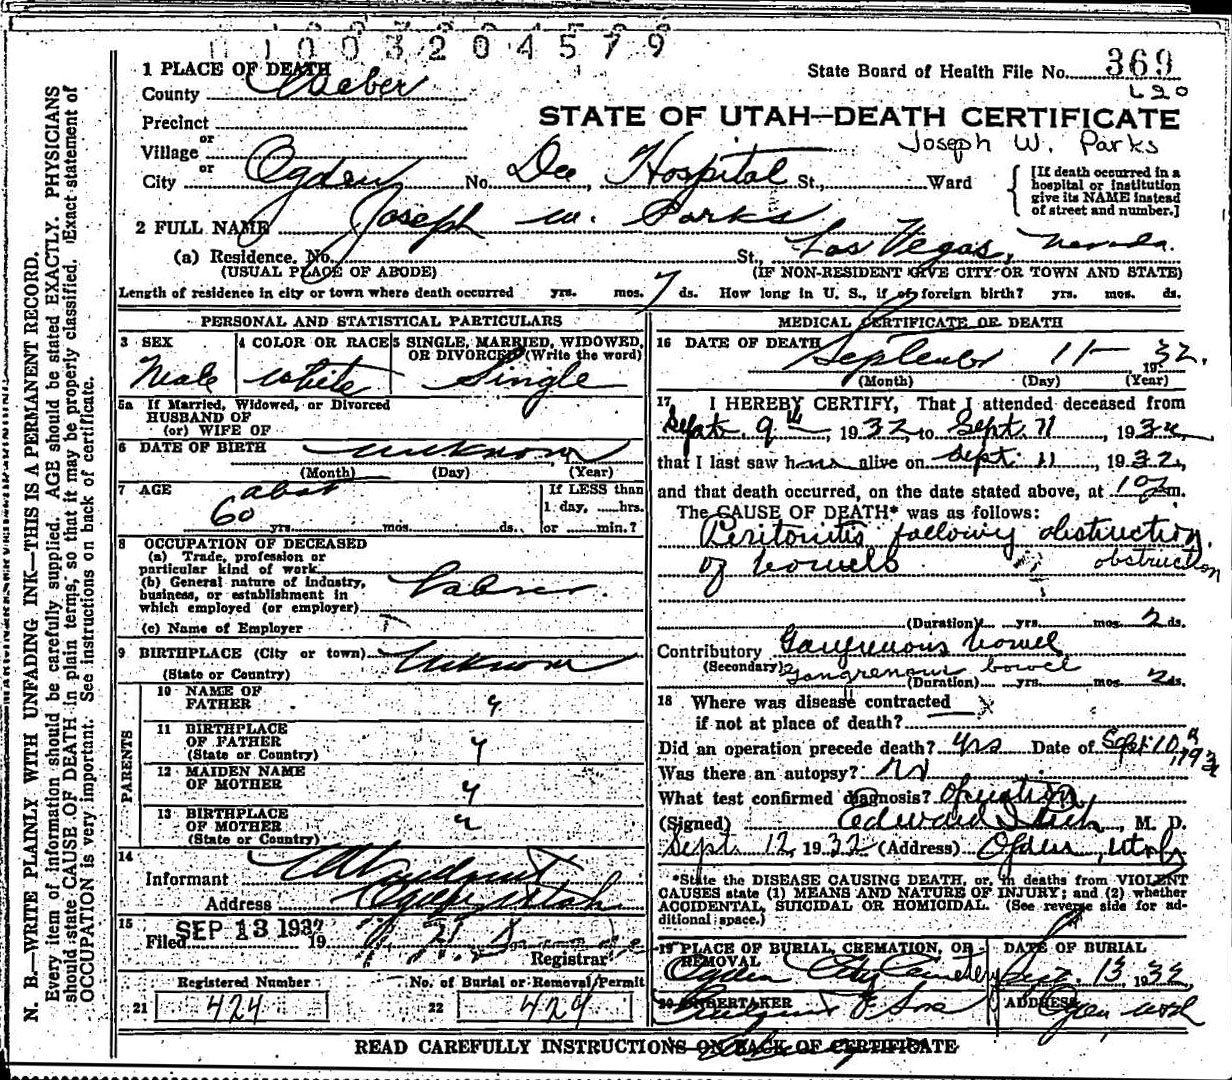 0 1 0 0 3 2 0 4 5 7 9
1 PLACE OF DEATH
County Weber
State Board of Health File No. 369
420
Precinct
STATE OF UTAH—DEATH CERTIFICATE
Joseph W. Parks
or
Village
or
City Ogden No. Dee Hospital St., Ward
[If death occurred in a hospital or institution give its NAME instead of street and number.]
2 FULL NAME Joseph W. Parks
(a) Residence. No. St., Las Vegas, Nevada.
(USUAL PLACE OF ABODE) (IF NON-RESIDENT GIVE CITY OR TOWN AND STATE)
Length of residence in city or town where death occurred yrs. mos. 7 ds. How long in U. S., if of foreign birth? yrs. mos. ds.
PERSONAL AND STATISTICAL PARTICULARS
3 SEX
Male
4 COLOR OR RACE
White
5 SINGLE, MARRIED, WIDOWED,
OR DIVORCED (Write the word)
Single
5a If Married, Widowed, or Divorced
HUSBAND OF
(or) WIFE OF
6 DATE OF BIRTH Unknown
(Month) (Day) (Year)
7 AGE about
60 yrs. mos. ds.
If LESS than
1 day, hrs.
or min.?
8 OCCUPATION OF DECEASED
(a) Trade, profession or
particular kind of work
(b) General nature of industry,
business, or establishment in
which employed (or employer) Labor.
(c) Name of Employer
9 BIRTHPLACE (City or town) Unknown
(State or Country)
PARENTS
10 NAME OF
FATHER
11 BIRTHPLACE
OF FATHER
(State or Country)
12 MAIDEN NAME
OF MOTHER
13 BIRTHPLACE
OF MOTHER
(State or Country)
14
Informant
Address Ogden, Utah
15
Filed SEP 13 1932 19
Registrar
Registered Number
21 424
No. of Burial or Removal Permit
22 424
MEDICAL CERTIFICATE OF DEATH
16 DATE OF DEATH September 11 1932.
(Month) (Day) (Year)
17 I HEREBY CERTIFY, That I attended deceased from
Sept. 9th, 1932, to Sept. 11, 1932
that I last saw him alive on Sept 11, 1932,
and that death occurred, on the date stated above, at m.
The CAUSE OF DEATH* was as follows:
Peritonitis following obstruction
of bowels obstruction
(Duration) yrs. mos. 2 ds.
Contributory Gangrenous bowel
(Secondary) Gangrenous bowel
(Duration) yrs. mos. 2 ds.
18 Where was disease contracted
if not at place of death?
Did an operation precede death? Yes Date of Sept 10, 1932
Was there an autopsy? No
What test confirmed diagnosis? Operation
(Signed) Edward, M. D.
Sept. 12, 1932 (Address) Ogden, Utah
*State the DISEASE CAUSING DEATH, or, in deaths from VIOLENT
CAUSES state (1) MEANS AND NATURE OF INJURY; and (2) whether
ACCIDENTAL, SUICIDAL OR HOMICIDAL. (See reverse side for ad-
ditional space.)
19 PLACE OF BURIAL, CREMATION, OR
REMOVAL
Ogden City Cemetery
DATE OF BURIAL
13, 1932
20 UNDERTAKER
& Sons
ADDRESS
Ogden Utah
READ CAREFULLY INSTRUCTIONS ON BACK OF CERTIFICATE
N. B.—WRITE PLAINLY WITH UNFADING INK—THIS IS A PERMANENT RECORD.
Every item of information should be carefully supplied. AGE should be stated EXACTLY. PHYSICIANS
should state CAUSE OF DEATH in plain terms, so that it may be properly classified. Exact statement of
OCCUPATION is very important. See instructions on back of certificate.